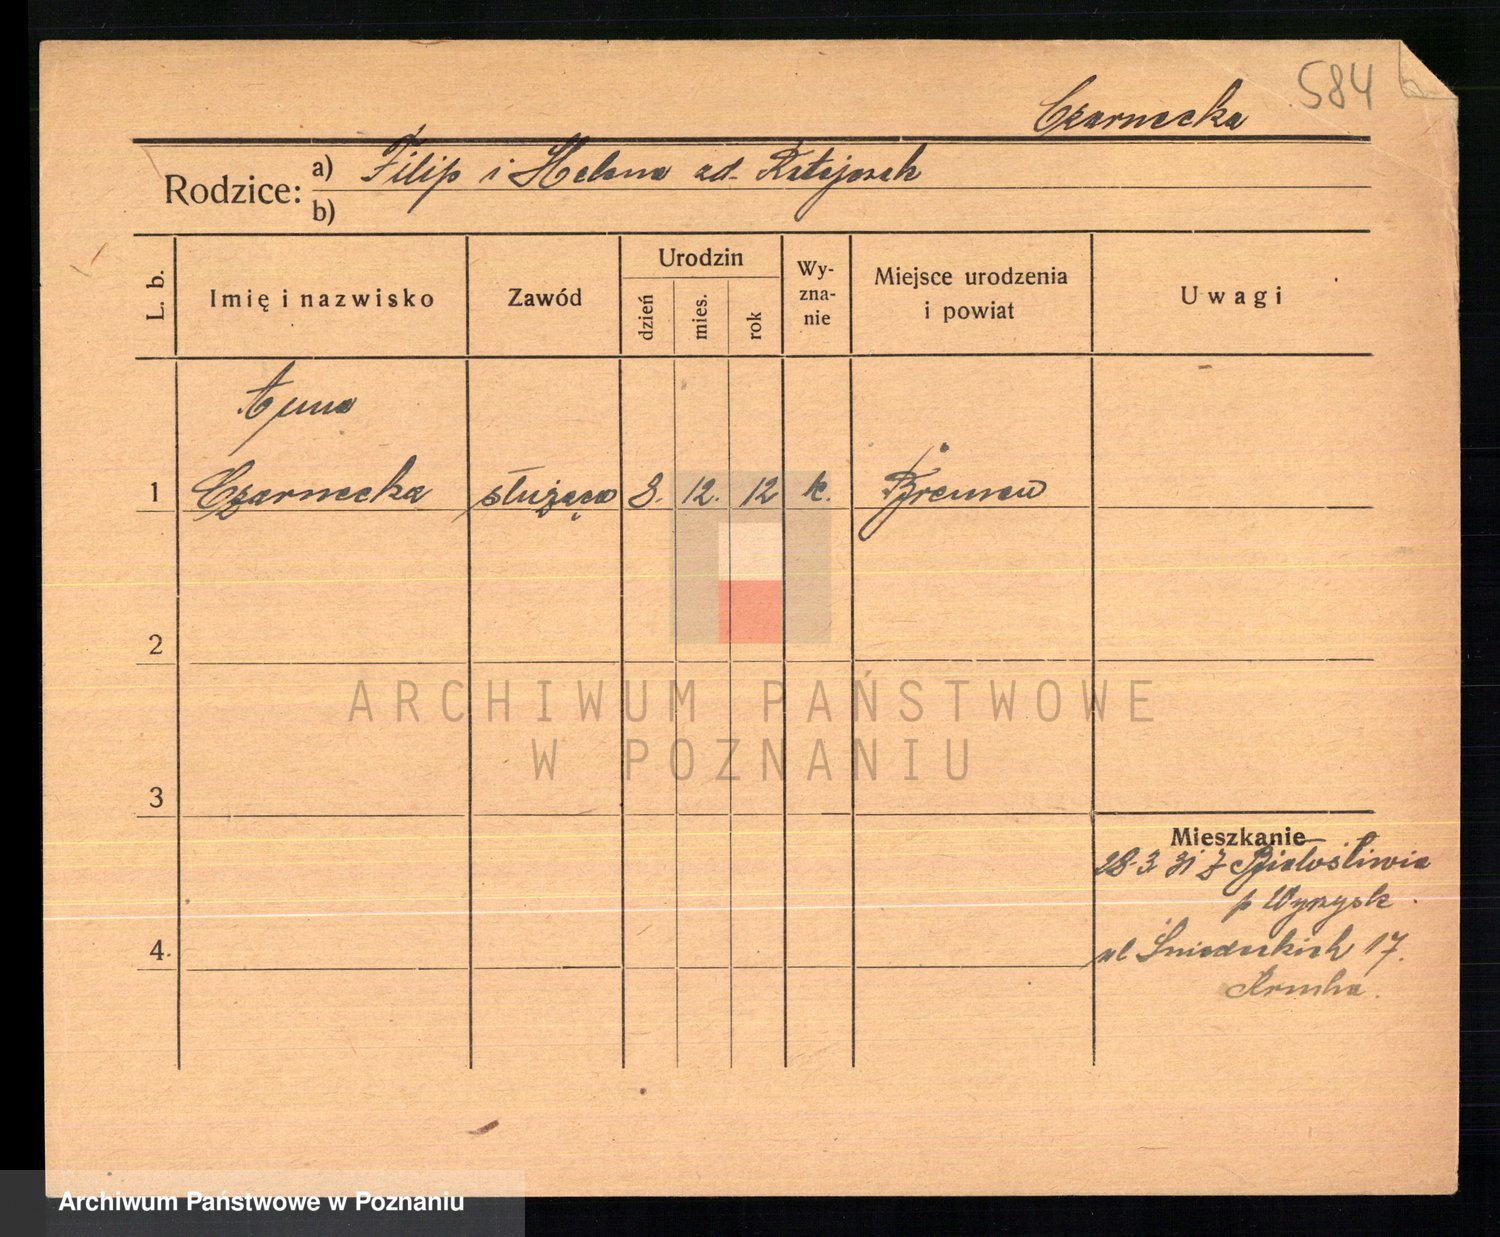 584
Czarnecka
Rodzice: a) Filip i Helena zd. Ratajczak
b)
L. b.
Imię i nazwisko
Zawód
Urodzin
dzień
mies.
rok
Wy-
zna-
nie
Miejsce urodzenia
i powiat
Uwagi
Anna
1 Czarnecka służąca 3. 12. 12 k. Bremen
2
3
4.
Mieszkanie
28.3.31 z Białośliwia
p Wyrzysk
ul Śniadeckich 17.
ARCHIWUM PAŃSTWOWE
W POZNANIU
Archiwum Państwowe w Poznaniu